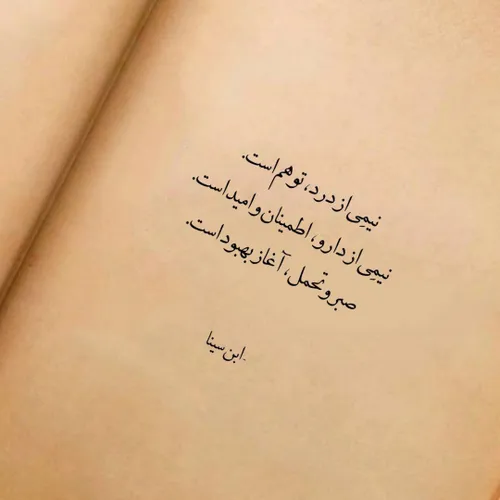 نیمی از درد، توهم است.
نیمی از دارو، اطمینان و امید است.
صبر و تحمل، آغاز بهبود است.
ابن سینا